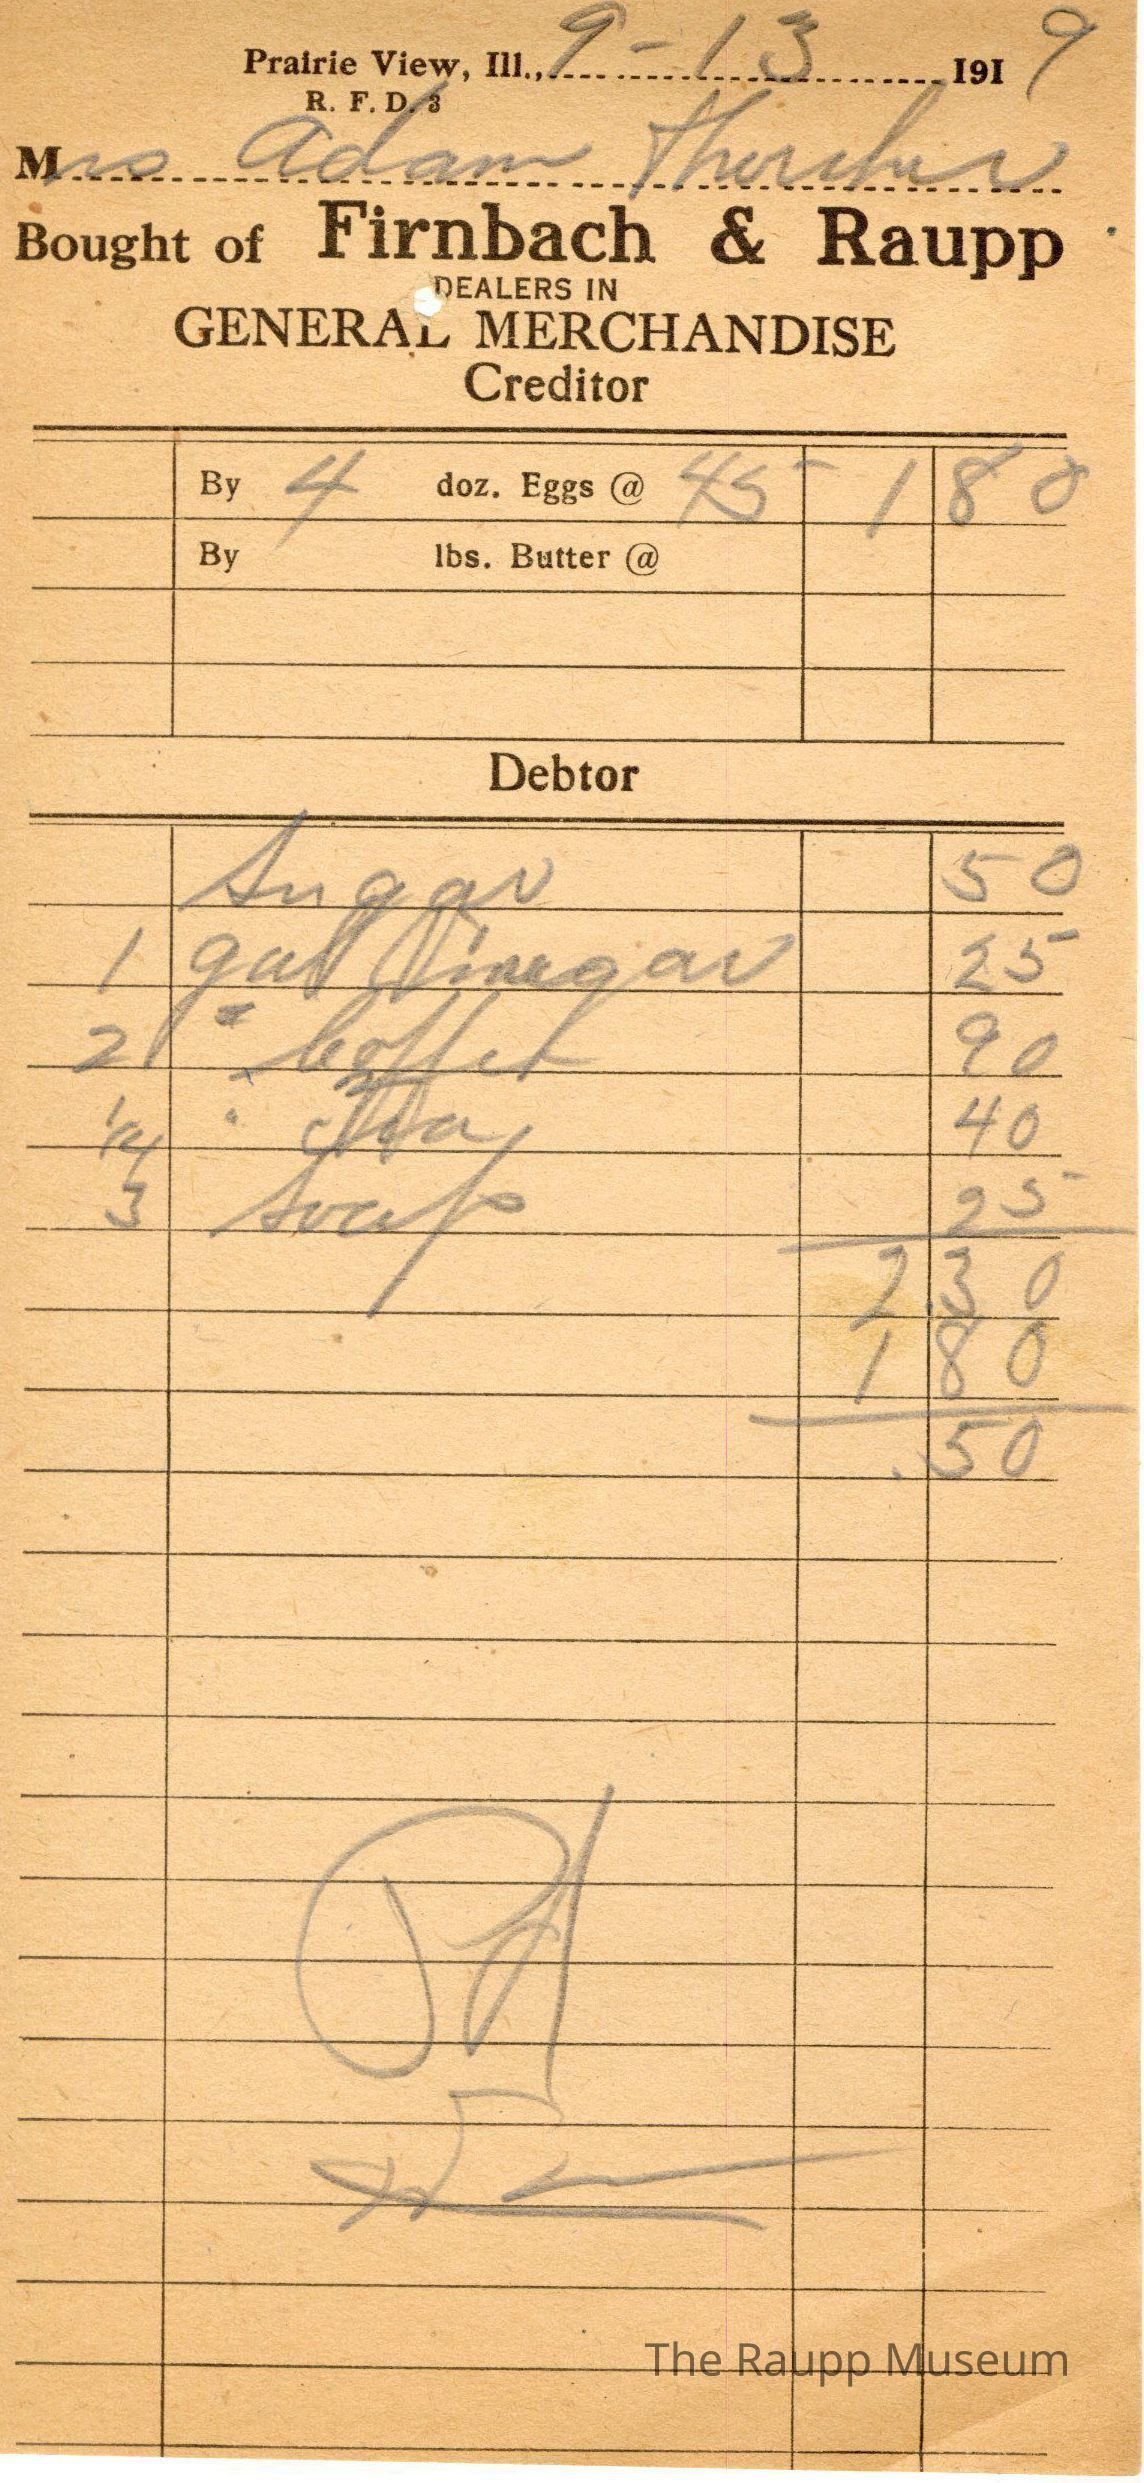 Prairie View, Ill., 9-13 1919
R. F. D. 3
Mrs Adam
Bought of Firnbach & Raupp
DEALERS IN
GENERAL MERCHANDISE
Creditor
By 4 doz. Eggs @ 45 1 80
By lbs. Butter @
Debtor
Suggar 50
1 gal Vinegar 25
2 " Coffee 90
1/4 " Tea 40
3 Soap 25
2.30
1 80
.50
Pd
The Raupp Museum